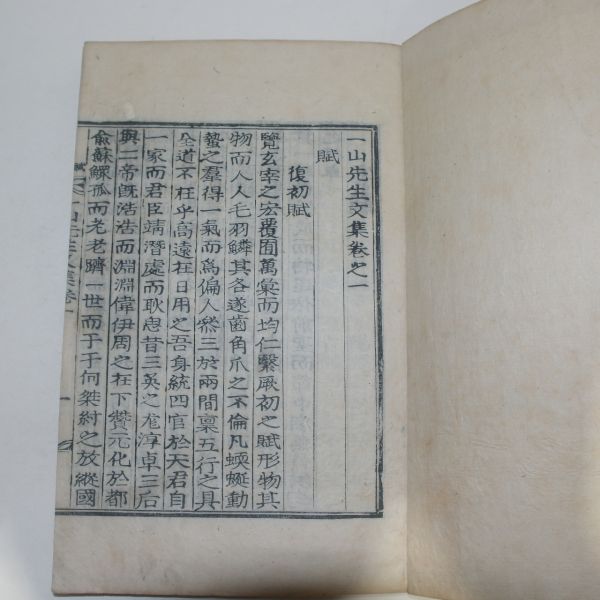 一山先生文集卷之一
賦
復初賦
覽玄宰之宏覆囿萬彙而均仁繫厥初之賦形物其
物而人人毛羽鱗其各遂齒角爪之不倫凡蝡蜒動
蟄之羣得一氣而爲偏人叅三於兩間稟五行之具
全道不枉乎高遠在日用之吾身統四官於天君自
一家而君臣靖潛處而耿忠昔三英之尨淳卓三后
與二帝旣浩浩而淵淵偉伊周之在下贊元化於都
兪蘇鰥孤而老老躋一世而于于何桀紂之放縱國
一山先生文集卷一
一